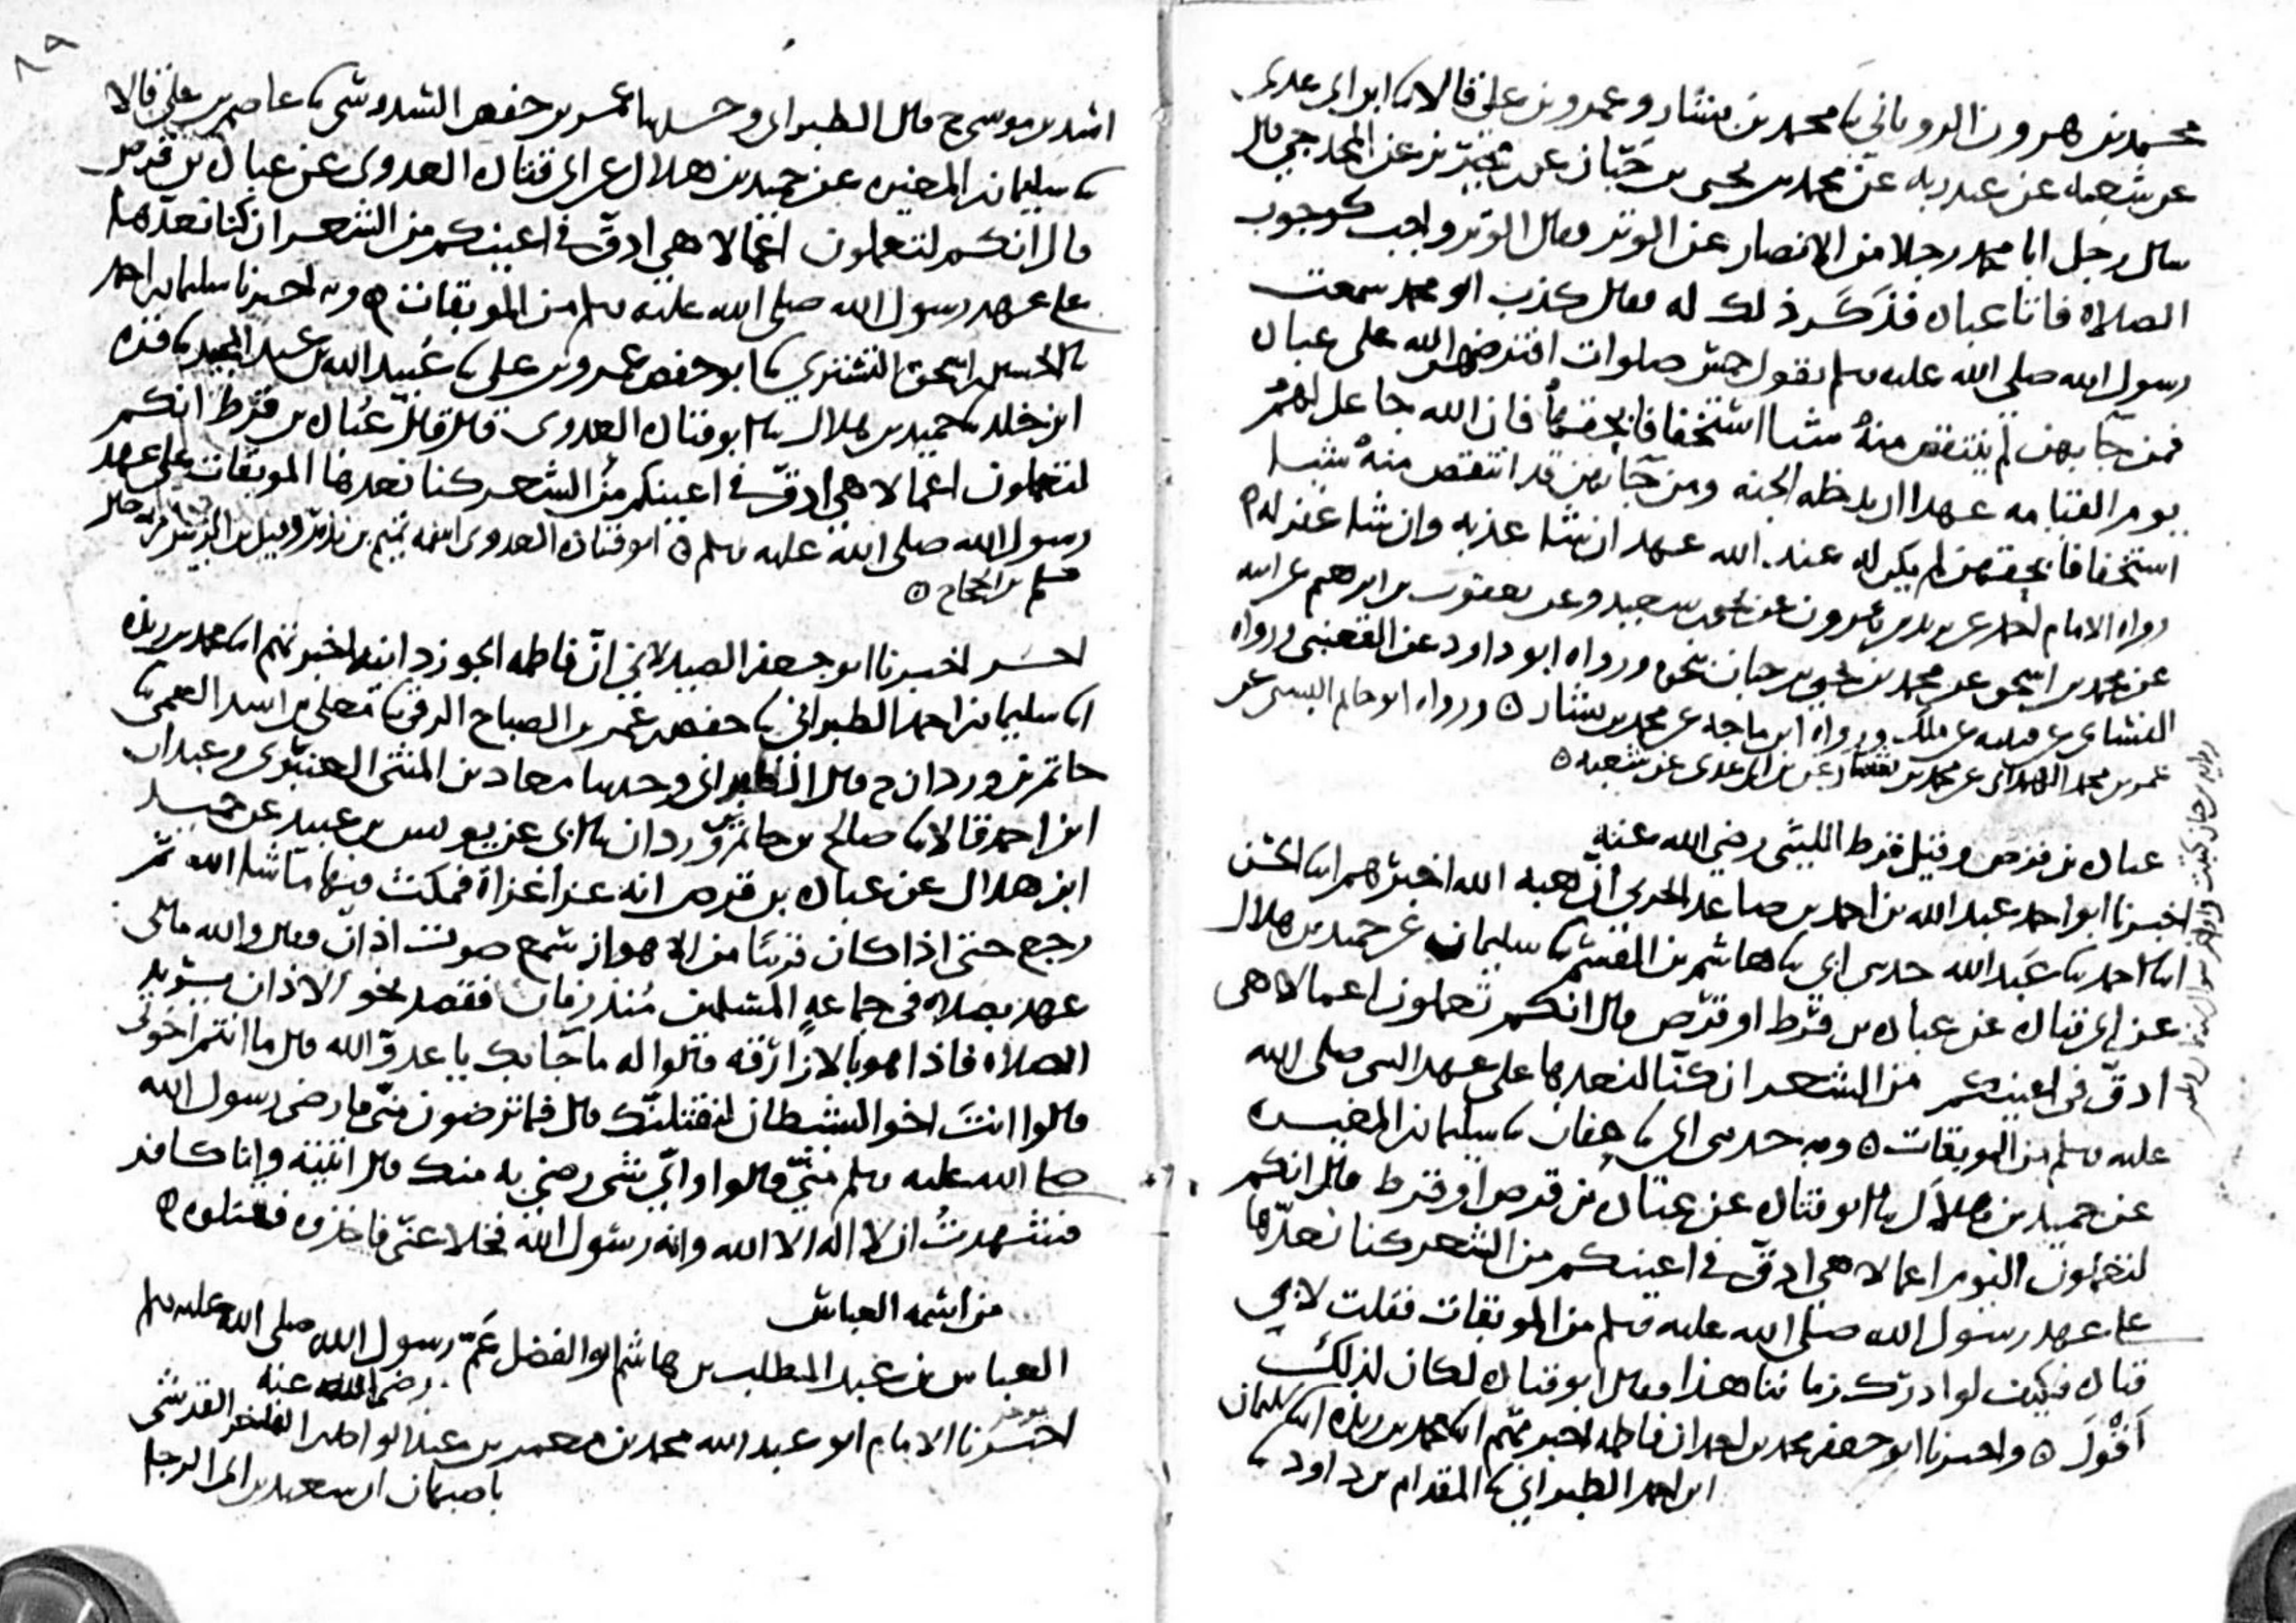 محمد بن هرون الروياني نا محمد بن بشار وعمرو بن علي قالا نا ابن ابي عدي
عن شعبه عن عبد ربه عن محمد بن يحيى بن حبان عن ابن محيريز عن المخدجي قال
سال رجل ابا محمد رجلا من الانصار عن الوتر فقال الوتر واجب كوجوب
الصلاة فاتا عباده فذكر ذلك له فقال كذب ابو محمد سمعت
رسول الله صلى الله عليه وسلم يقول خمس صلوات افترضهن الله على عباده
فمن جا بهن لم ينتقص منه شيا استخفافا بحقهن فان الله جاعل لهم
يوم القيامه عهدا ان يدخله الجنه ومن جا بهن قد انتقص منه شيا
استخفافا بحقهن لم يكن له عند الله عهد ان شا عذبه وان شا غفر له
رواه الامام احمد عن يزيد بن هرون عن يحيى بن سعيد وعن يعقوب بن ابرهيم عن ابيه
عن محمد بن اسحق عن محمد بن يحيى بن حبان نحوه ورواه ابو داود عن القعنبي ورواه
النسائي عن قتيبه عن ملك ورواه ابن ماجه عن محمد بن بشار ورواه ابو حاتم البستي عن
عمر بن محمد الهمداني عن محمد بن بشار عن ابن ابي عدي عن شعبه
عباده بن قرص وقيل قرط الليثي رضي الله عنه
اخبرنا ابو احمد عبد الله بن احمد بن صاعد الحربي ان هبه الله اخبرهم انا الحسن
انا احمد نا عبد الله حدثني ابي نا هاشم بن القسم نا سليمان عن حميد بن هلال
عن ابي قتاده عن عباده بن قرط او قرص قال انكم تعملون اعمالا هي
ادق في اعينكم من الشعر ان كنا لنعدها على عهد النبي صلى الله
عليه وسلم من الموبقات وبه حدثني ابي نا عفان نا سليمان بن المغيره
عن حميد بن هلال نا ابو قتاده عن عباده بن قرص او قرط قال انكم
لتعملون اليوم اعمالا هي ادق في اعينكم من الشعر كنا نعدها
على عهد رسول الله صلى الله عليه وسلم من الموبقات فقلت لابي
قتاده فكيف لو ادرك زماننا هذا فقال ابو قتاده لكان لذلك
اقول واخبرنا ابو جعفر محمد بن احمد ان فاطمه اخبرتهم انا محمد بن ريذه انا سليمان
ابن احمد الطبراني نا المقدام بن داود نا
اسد بن موسى ح قال الطبراني وحدثنا عمر بن حفص السدوسي نا عاصم بن علي قالا
نا سليمان بن المغيره عن حميد بن هلال عن ابي قتاده العدوي عن عباده بن قرص
قال انكم لتعملون اعمالا هي ادق في اعينكم من الشعر ان كنا نعدها
على عهد رسول الله صلى الله عليه وسلم من الموبقات وبه اخبرنا سليمان بن احمد
نا الحسين بن اسحق التستري نا ابو حفص عمرو بن علي نا عبيد الله بن عبد المجيد نا قره
ابن خلد نا حميد بن هلال نا ابو قتاده العدوي قال قال عباده بن قرط انكم
لتعملون اعمالا هي ادق في اعينكم من الشعر كنا نعدها الموبقات على عهد
رسول الله صلى الله عليه وسلم ابو قتاده العدوي اسمه تميم بن نذير وقيل ابن الزبير
مسلم بن الحجاج
اخبرنا ابو جعفر الصيدلاني ان فاطمه الجوزدانيه اخبرتهم انا محمد بن ريذه
انا سليمان بن احمد الطبراني نا حفص بن عمر بن الصباح الرقي نا معلى بن اسد العمي نا
حاتم بن وردان ح قال الطبراني وحدثنا معاد بن المثنى العنبري وعبدان
ابن احمد قالا نا صالح بن حاتم بن وردان نا ابي عن يونس بن عبيد عن حميد
ابن هلال عن عباده بن قرص انه غزا غزاة فمكث فيها ما شا الله ثم
رجع حتى اذا كان قريبا من الاهواز سمع صوت اذان فقال والله مالي
عهد بصلاه في جماعه المسلمين منذ زمان فقصد نحو الاذان يريد
الصلاه فاذا هو بالازارقه قالوا له ما جا بك يا عدو الله قال ما انتم اخوتي
قالوا انت اخو الشيطان لنقتلنك قال فما ترضون مني ما رضى رسول الله
صلى الله عليه وسلم مني قالوا واي شي رضي به منك قال اتيته وانا كافر
فشهدت ان لا اله الا الله وانه رسول الله فخلا عني فاخذوه فقتلوه
من اسمه العباس
العباس بن عبد المطلب بن هاشم ابو الفضل عم رسول الله صلى الله عليه وسلم
رضي الله عنه
اخبرنا الامام ابو عبد الله محمد بن معمر بن عبد الواحد بن الفاخر القرشي
باصبهان ان سعيد بن ابي الرجا